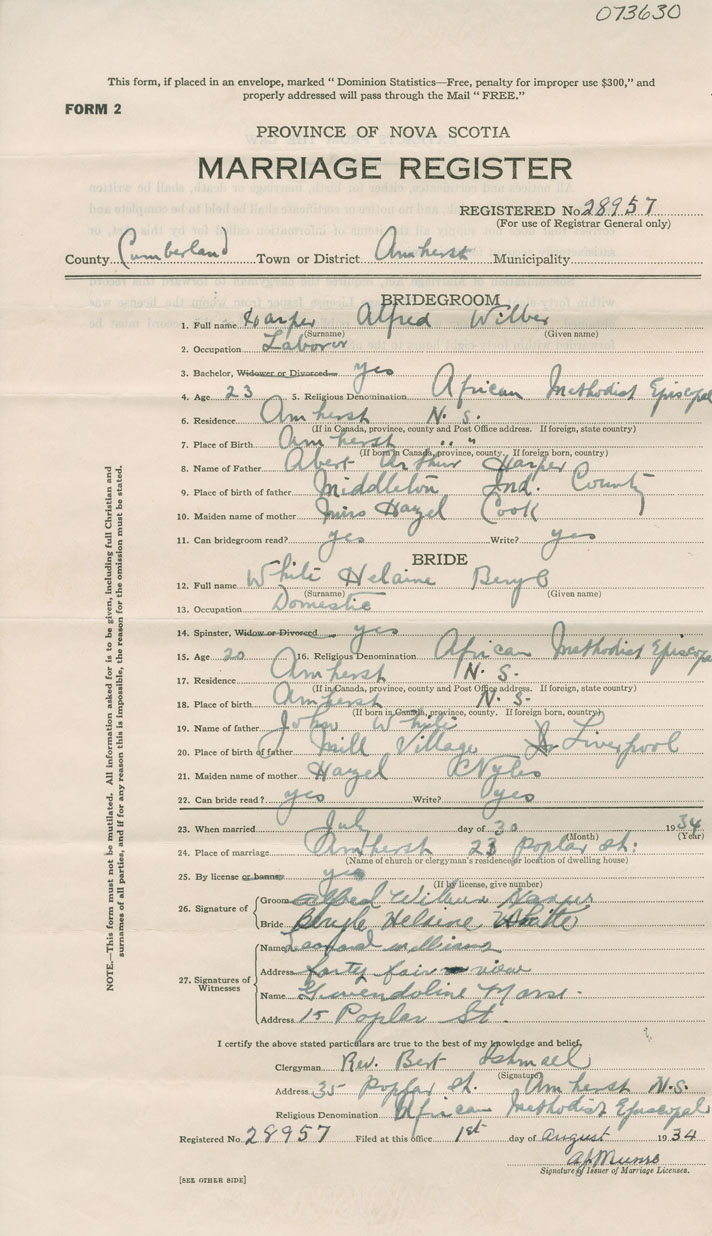 073630
This form, if placed in an envelope, marked "Dominion Statistics—Free, penalty for improper use $300," and
properly addressed will pass through the Mail "FREE."
FORM 2
PROVINCE OF NOVA SCOTIA
MARRIAGE REGISTER
REGISTERED No. 28957
(For use of Registrar General only)
County Cumberland Town or District Amherst Municipality
BRIDEGROOM
1. Full name Harper Alfred Wilber
(Surname) (Given name)
2. Occupation Laborer
3. Bachelor, Widower or Divorced yes
4. Age 23 5. Religious Denomination African Methodist Episcopal
6. Residence Amherst N. S.
(If in Canada, province, county and Post Office address. If foreign, state country)
7. Place of Birth Amherst " "
(If born in Canada, province, county. If foreign born, country)
8. Name of Father Abert Arthur Harper
9. Place of birth of father Middleton Ind. County
10. Maiden name of mother miss Hazel Cook
11. Can bridegroom read? yes Write? yes
BRIDE
12. Full name White Helaine Beryl
(Surname) (Given name)
13. Occupation Domestic
14. Spinster, Widow or Divorced yes
15. Age 20 16. Religious Denomination African Methodist Episcopal
17. Residence Amherst N. S.
(If in Canada, province, county and Post Office address. If foreign, state country)
18. Place of birth Amherst N. S.
(If born in Canada, province, county. If foreign born, country)
19. Name of father John White
20. Place of birth of father Mill Village Liverpool
21. Maiden name of mother Hazel
22. Can bride read? yes Write? yes
23. When married July day of 30 1934
(Month) (Year)
24. Place of marriage Amherst 23 Poplar St:
(Name of church or clergyman's residence or location of dwelling house)
25. By license or banns yes
(If by license, give number)
26. Signature of
Groom Alfred Wilbur Harper
Bride Beryle Helaine White
27. Signatures of Witnesses
Name Leonard Williams
Address forty fair view
Name Gwendoline
Address 15 Poplar St.
I certify the above stated particulars are true to the best of my knowledge and belief,
Clergyman Rev. Bert Ishmael
(Signature)
Address 35 Poplar St. Amherst N.S.
Religious Denomination African Methodist Episcopal
Registered No. 28957 Filed at this office 1st day of August 1934
A J Munro
Signature of Issuer of Marriage Licenses.
[SEE OTHER SIDE]
NOTE.—This form must not be mutilated. All information asked for is to be given, including full Christian and
surnames of all parties, and if for any reason this is impossible, the reason for the omission must be stated.